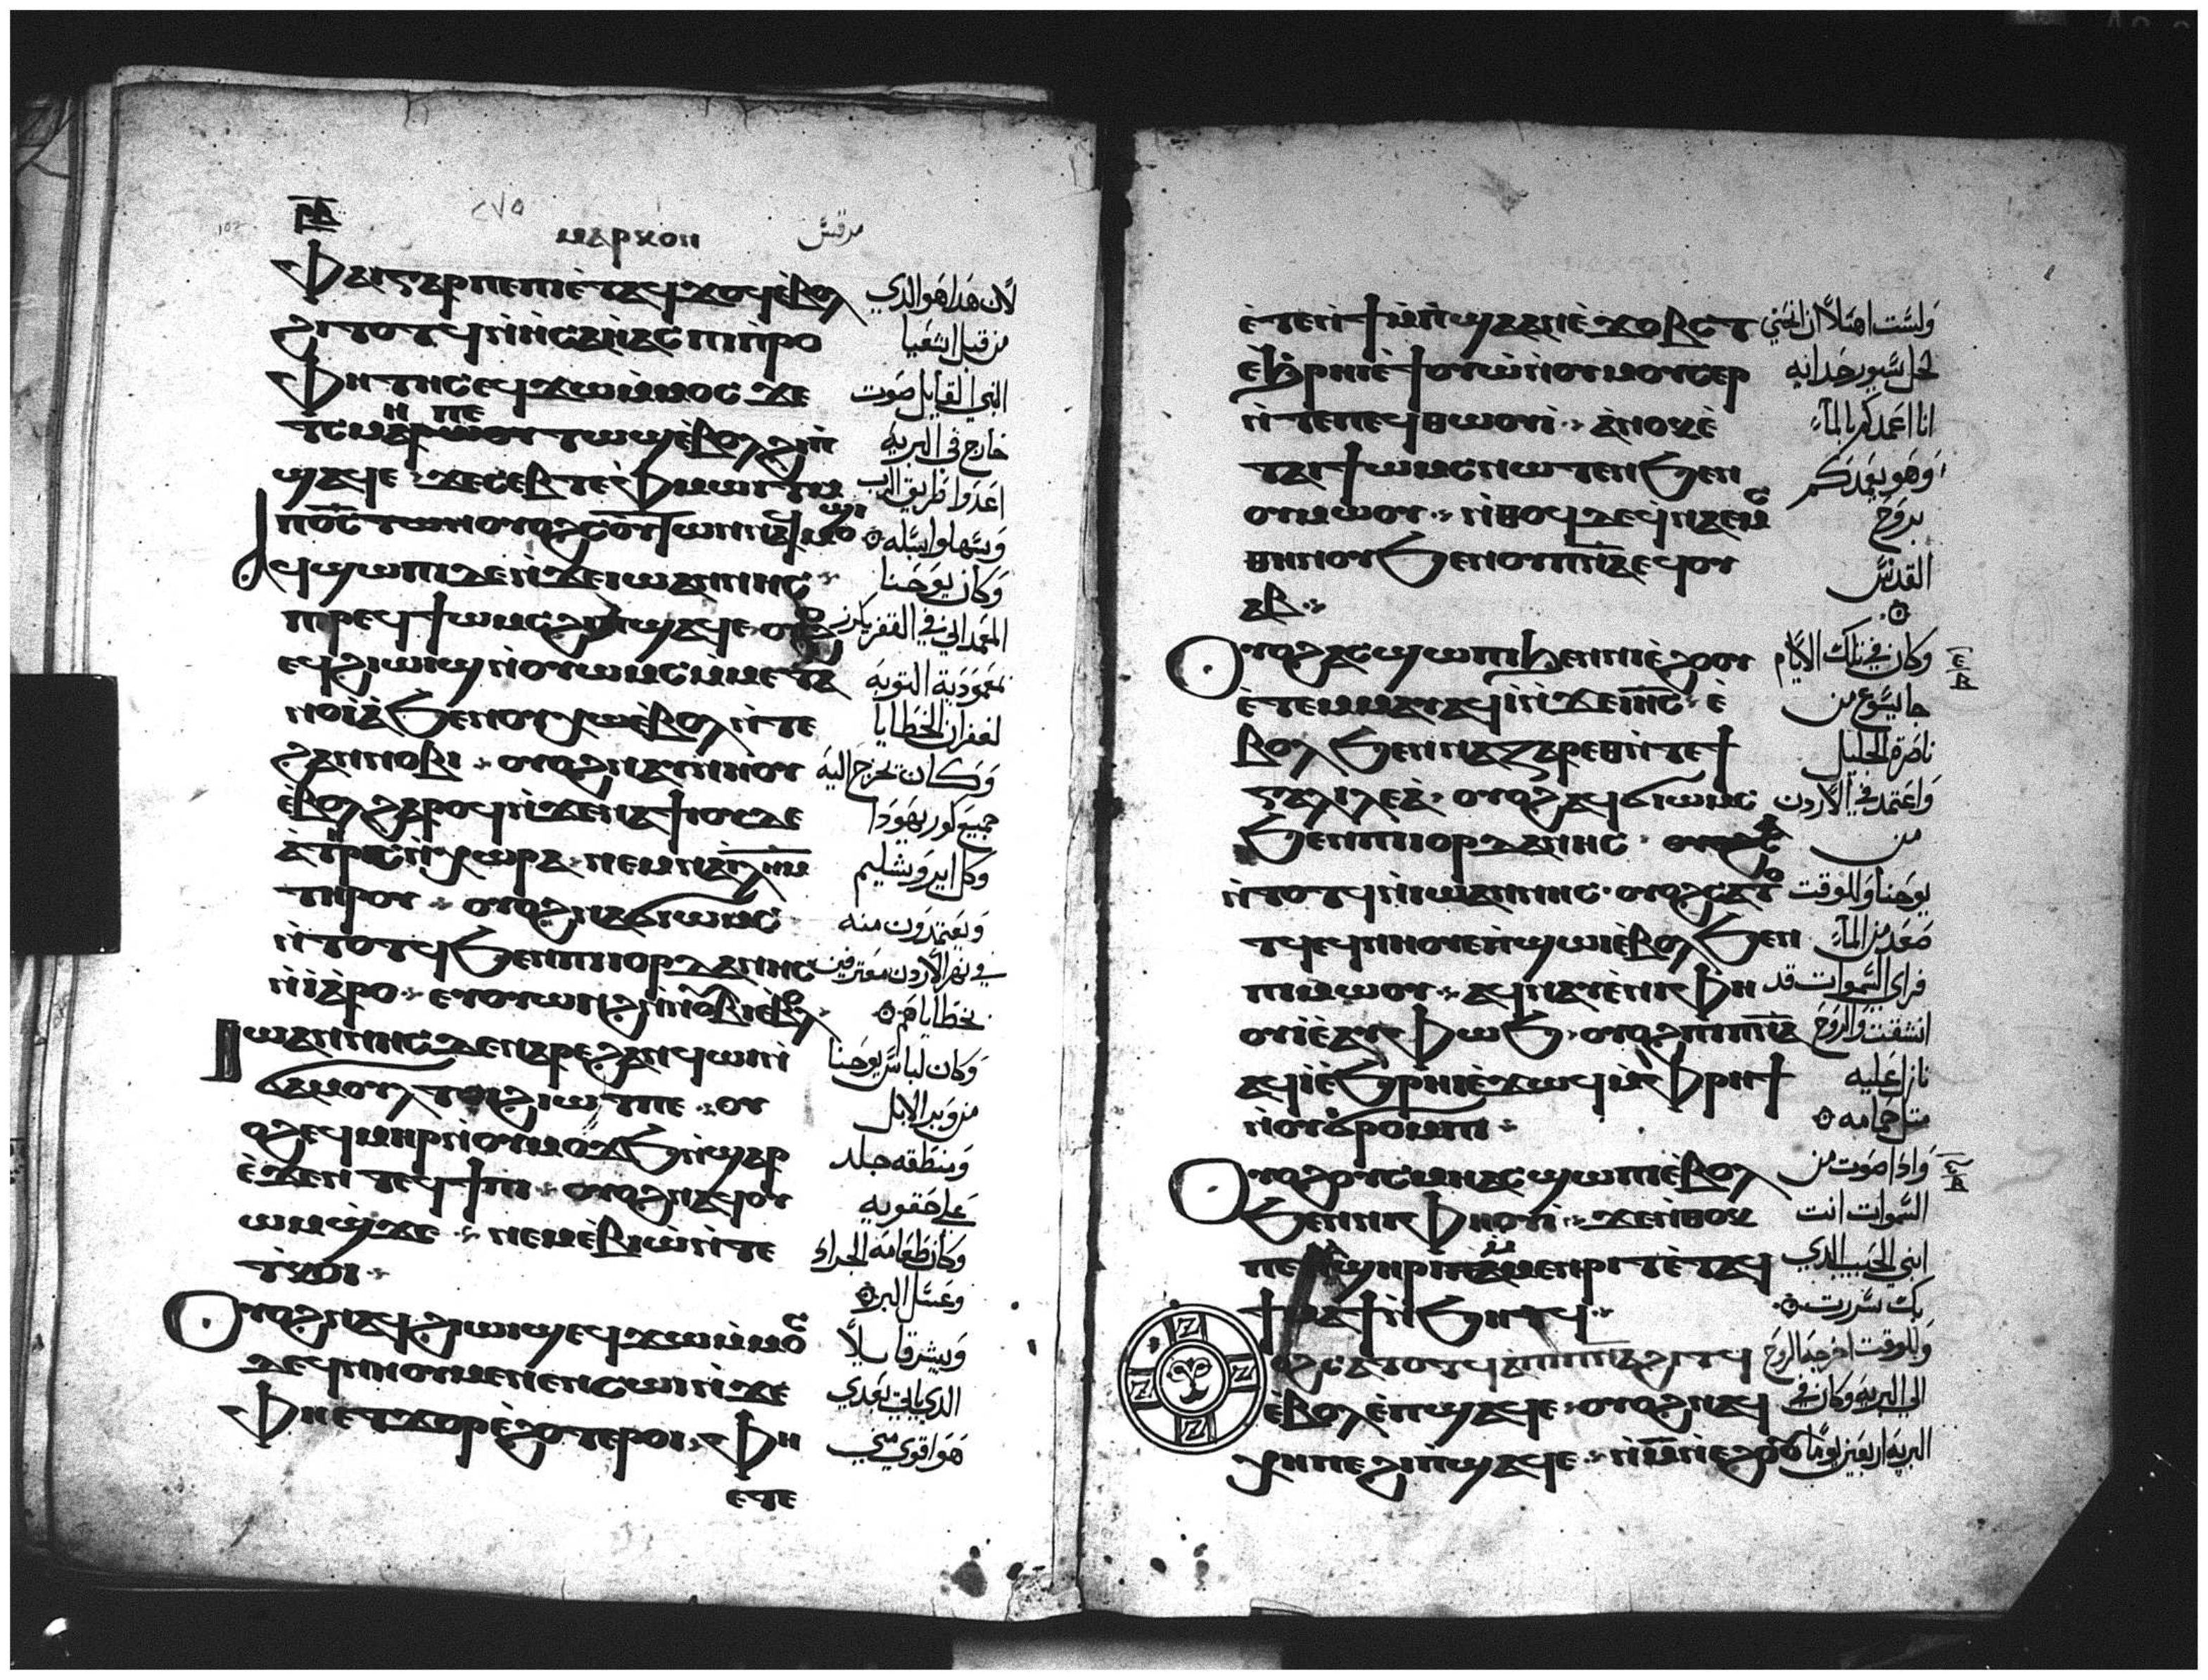 ⲙⲁⲣⲕⲟⲛ
مرقس
Ⲫⲁⲓⲅⲁⲣⲡⲉⲡⲓⲉ̀ⲧⲁϥϫⲟϥⲉ̀ⲃⲟⲗ
ϩⲓⲧⲟⲧϥⲛ̀ⲏ̀ⲥⲁⲏ̀ⲁⲥⲡⲓⲡ̀ⲣⲟ
Ⲫⲏⲧⲏⲥⲉϥϫⲱⲙ̀ⲙⲟⲥϫⲉ
ϣⲁϥⲉ·ϫⲉⲥⲉⲃⲧⲉⲫ̀ⲙⲱⲓⲧⲙ̀
ⲁϥϣⲱⲡⲓⲇⲉⲛ̀ϫⲉⲓⲱⲁⲛⲛⲏⲥ
ⲡⲓⲣⲉϥϯⲱⲙⲥϩⲓⲡ̀ϣⲁϥⲉ·ⲟⲩⲟϩ
ⲉϥϩⲓⲱⲓϣⲛ̀ⲟⲩⲱⲙⲥⲙ̀ⲙⲉⲧⲁ
ⲛⲟⲓⲁ̀ϧⲉⲛⲟⲩⲭⲱⲉ̀ⲃⲟⲗⲛ̀ⲧⲉ
ϩⲁⲛⲛⲟⲃⲓ·ⲟⲩⲟϩⲛⲁⲩⲛⲏⲟⲩ
ⲉ̀ⲃⲟⲗϩⲁⲣⲟϥⲛ̀ϫⲉⲛⲁϯⲓⲟⲩⲇⲉ
ⲁ̀ⲧⲏⲣⲥⲛ̀ⲭⲱⲣⲁ·ⲛⲉⲙⲛⲁⲓ̅ⲗ̅ⲏ̅ⲙ̅
ⲧⲏⲣⲟⲩ·ⲟⲩⲟϩⲛⲁⲩϭⲓⲱⲙⲥ
ⲛ̀ⲧⲟⲧϥϧⲉⲛⲡⲓⲓⲟⲣⲇⲁⲛⲏⲥ
ⲛ̀ⲓⲁ̀ⲣⲟ·ⲉⲩⲟⲩⲱⲛϩⲛ̀ⲛⲟⲩⲛⲟⲃⲓⲉ̀ⲃⲟⲗ
Ⲓⲱⲁⲛⲛⲏⲥⲇⲉⲛⲁⲣⲉϩⲁⲛϥⲱⲓⲛ̀
ϭⲁⲙⲟⲩⲗⲧⲟⲓϩⲓⲱⲧⲡⲉ·ⲟⲩ
ⲟϩⲉϥⲙⲏⲣⲛ̀ⲟⲩⲙⲟϫϧⲛ̀ϣⲁⲣ
ⲉ̀ϫⲉⲛⲧⲉϥϯⲡⲓ·ⲟⲩⲟϩⲛⲁϥⲟⲩ
ⲱⲙϣ̀ϫⲉ·ⲛⲉⲙⲉ̀ⲃⲓⲱ̀ⲛ̀ⲧⲉ
ⲧ̀ⲕⲟⲓ·
Ⲟⲩⲟϩⲛⲁϥϩⲓⲱⲓϣⲉϥϫⲱⲙ̀ⲙⲟⲥ
ϫⲉϥⲛⲏⲟⲩⲙⲉⲛⲉⲛⲥⲱⲓⲛ̀ϫⲉ
Ⲫⲏⲉⲧϫⲟⲣⲉ̀ϩⲟⲧⲉⲣⲟⲓ·Ⲫⲏ
ⲉⲧⲉ
لان هدا هو الدي
من قبل اشعيا
النبي القايل صوت
خارج في البريه
اعدوا طريق الرب
وسهلوا سبله
وكان يوحنا
المعمداني في القفر يكرز
بمعموديه التوبه
لغفران الخطايا
وكان تخرج اليه
جميع كور يهودا
وكل ايروشليم
ويعتمدون منه
في نهر الاردن معترفين
بخطاياهم
وكان لباس يوحنا
من وبر الابل
ومنطقه جلد
علي حقويه
وكان طعامه الجراد
وعسل البر
ويبشر قايلا
الدي ياتي بعدي
هو اقوي مني
ⲉ̀ⲧⲉⲛ̀ϯⲙ̀ⲡ̀ϣⲁⲁⲛⲉ̀ϫⲟⲃⲥⲧ
ⲉ̀ϧ̀ⲣⲏⲓⲉ̀ϯⲟⲩⲱ̀ⲛ̀ⲟⲩⲙⲟⲩⲥⲉⲣ
ⲛ̀ⲧⲉⲡⲉϥⲑⲱⲟⲩⲓ̀·ⲁ̀ⲛⲟⲕⲉ̀
ⲧⲁⲓϯⲱⲙⲥⲛⲱⲧⲉⲛϧⲉⲛ
ⲟⲩⲙⲱⲟⲩ·ⲛ̀ⲑⲟϥⲇⲉϥⲛⲁⲉⲙⲥ
ⲑⲏⲛⲟⲩϧⲉⲛⲟⲩⲡ̅ⲛ̅ⲁ̅ⲉϥⲟⲩ
ⲁⲃ·
Ⲟⲩⲟϩⲁⲥϣⲱⲡⲓϧⲉⲛⲛⲓⲉ̀ϩⲟⲟⲩ
ⲉ̀ⲧⲉⲙⲙⲁⲩⲁϥⲓ̀ⲛ̀ϫⲉⲓ̅ⲏ̅ⲥ̅·ⲉ̀
ⲃⲟⲗϧⲉⲛⲛⲁⲍⲁⲣⲉⲑⲛ̀ⲧⲉϯ
ⲅⲁⲗⲓⲗⲉⲁ̀·ⲟⲩⲟϩⲁϥϭⲓⲱⲙⲥ
ϧⲉⲛⲡⲓⲓⲟⲣⲇⲁⲛⲏⲥ·
ⲛ̀ⲧⲟⲧϥⲛ̀ⲓⲱⲁⲛⲛⲏⲥ·ⲟⲩⲟϩⲥⲁⲧⲟ
ⲧϥⲉϥⲛⲏⲟⲩⲉ̀ⲡ̀ϣⲱⲓⲉ̀ⲃⲟⲗϧⲉⲛ
ⲡⲓⲙⲱⲟⲩ·ⲁϥⲛⲁⲩⲉ̀ⲛⲓⲫⲏ
ⲟⲩⲓ̀ⲉ̀ⲁⲩⲫⲱϧ·ⲟⲩⲟϩⲡⲓⲡ̅ⲛ̅ⲁ̅
ⲁϥⲓ̀ⲉ̀ϧⲣⲏⲓⲉ̀ϫⲱϥⲙ̀ⲫⲣⲏϯ
ⲛ̀ⲟⲩϭⲣⲟⲙⲡⲓ·
Ⲟⲩⲟϩⲟⲩⲥⲙⲏⲁⲥϣⲱⲡⲓⲉ̀ⲃⲟⲗ
ϧⲉⲛⲛⲓⲫⲏⲟⲩⲓ̀·ϫⲉⲛ̀ⲑⲟⲕ
ϯⲙⲁϯⲛ̀ϧⲏⲧϥ·
ⲟϩⲥⲁⲧⲟⲧϥⲁⲡⲓⲡ̅ⲛ̅ⲁ̅ϩⲓⲧϥ
ⲉ̀ⲃⲟⲗⲉ̀ⲡ̀ϣⲁϥⲉ·ⲟⲩⲟϩⲛⲁϥ
ⲭⲏⲡⲉϩⲓⲡ̀ϣⲁϥⲉ·ⲛ̀ⲙ̅ⲛ̀ⲉϩⲟⲟⲩ
ولست اهلا ان انحني
لحل سيور حدايه
انا اعمدكم بالماء
وهو يعمدكم
بروح
القدس
وكان في تلك الايام
جا يسوع من
ناصرة الجليل
واعتمد في الاردن
من
يوحنا وللوقت
صعد من الماء
فراي السموات قد
انشقت والروح
نازل عليه
متل حمامه
وادا صوت من
السموات انت
ابني الحبيب الدي
بك سررت
وللوقت اخرجه الروح
الي البريه وكان في
البريه اربعين يوما